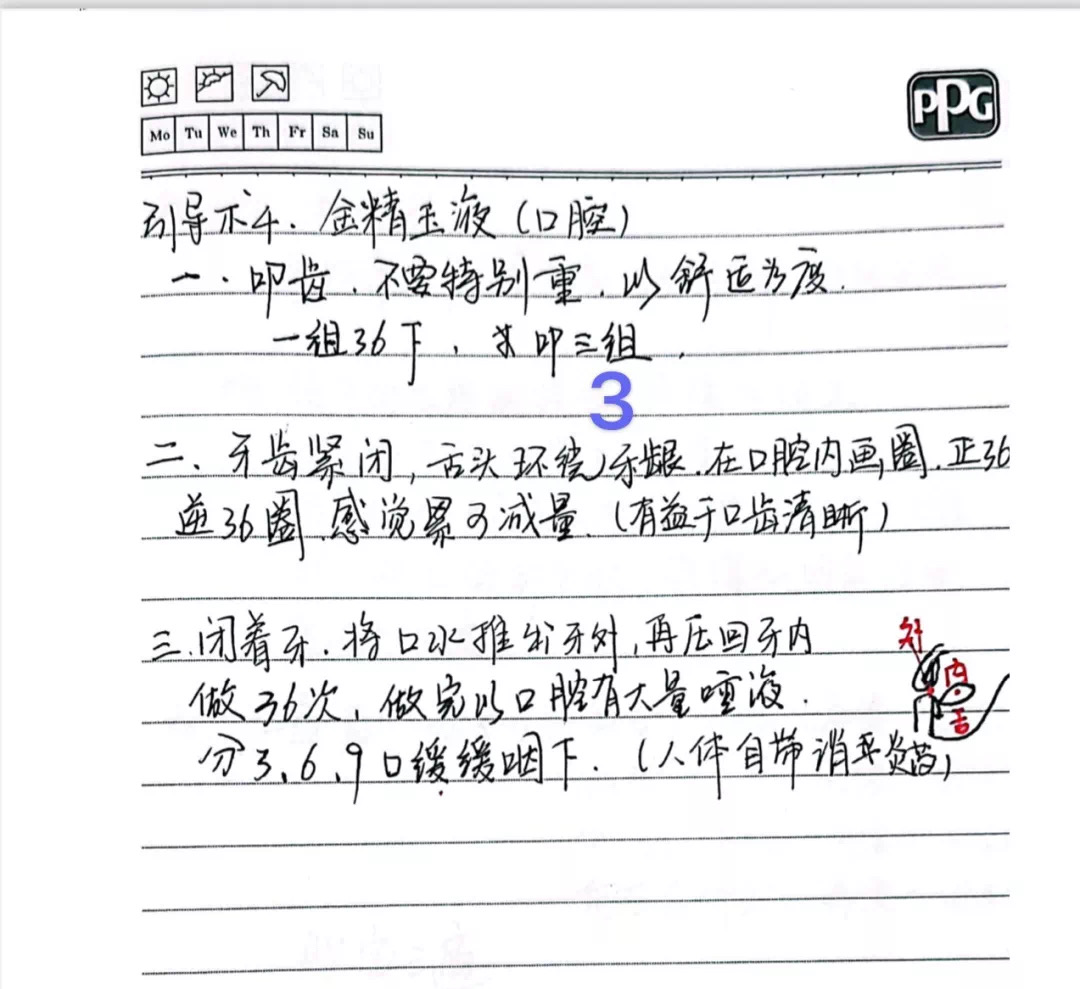 PPG
Mo Tu We Th Fr Sa Su
引导术4. 金精玉液(口腔)
一. 叩齿. 不要特别重. 以舒适为度.
一组36下, 共叩三组.
3
二. 牙齿紧闭, 舌头环绕牙龈. 在口腔内画圈. 正36
逆36圈. 感觉累可减量. (有益于口齿清晰)
三. 闭着牙. 将口水推出牙外, 再压回牙内
外
内
舌
做36次, 做完以口腔有大量唾液.
分3、6、9口缓缓咽下. (人体自带消炎